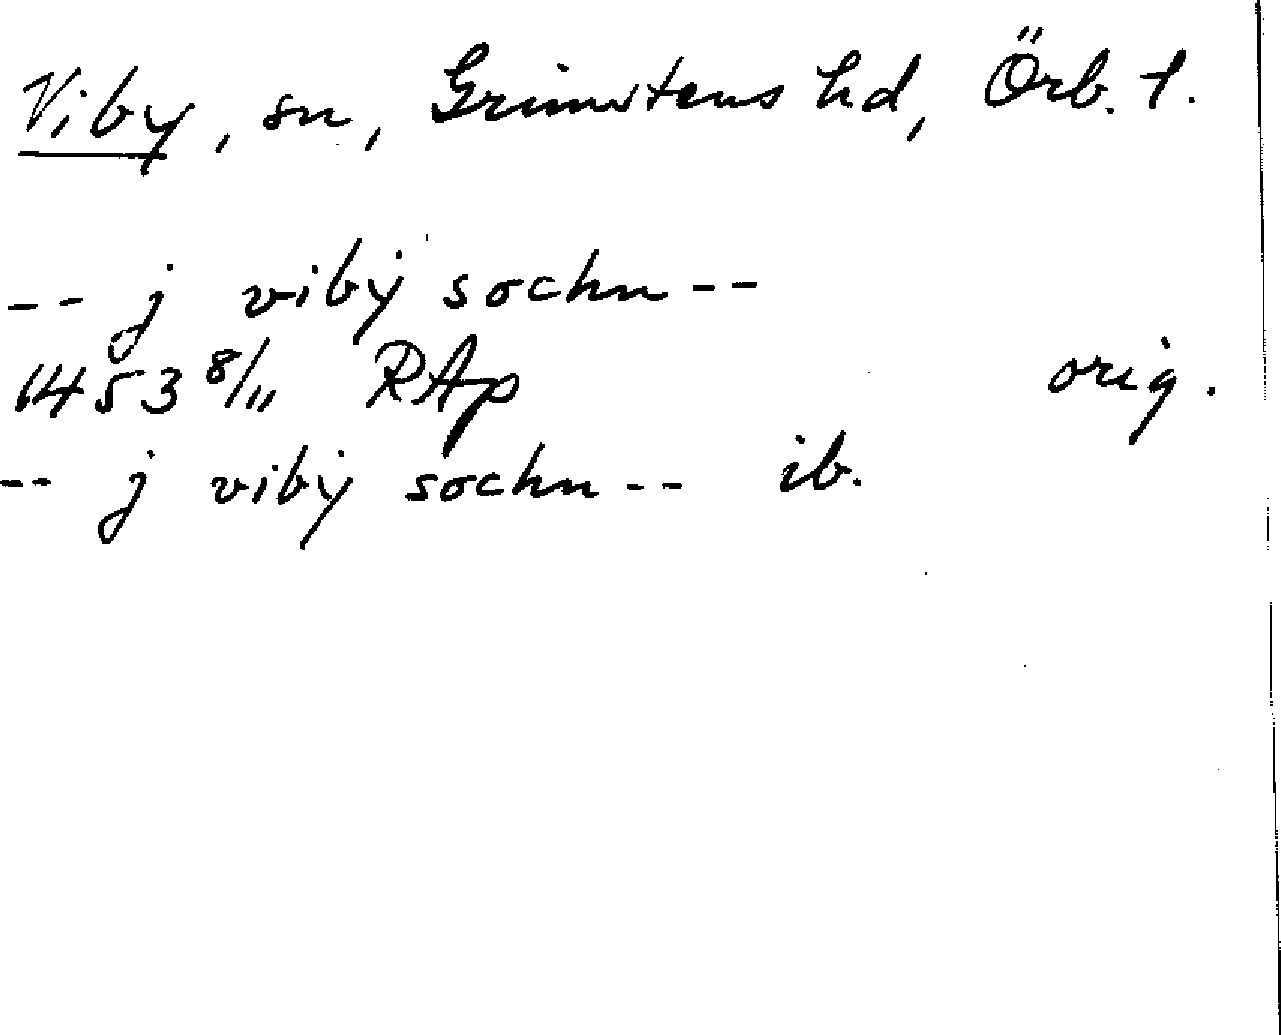 Viby, sn, Grimstens hd, Örb. l.
-- j vibÿ sochn --
1453 8/11 RAp orig.
-- j vibÿ sochn -- ib.